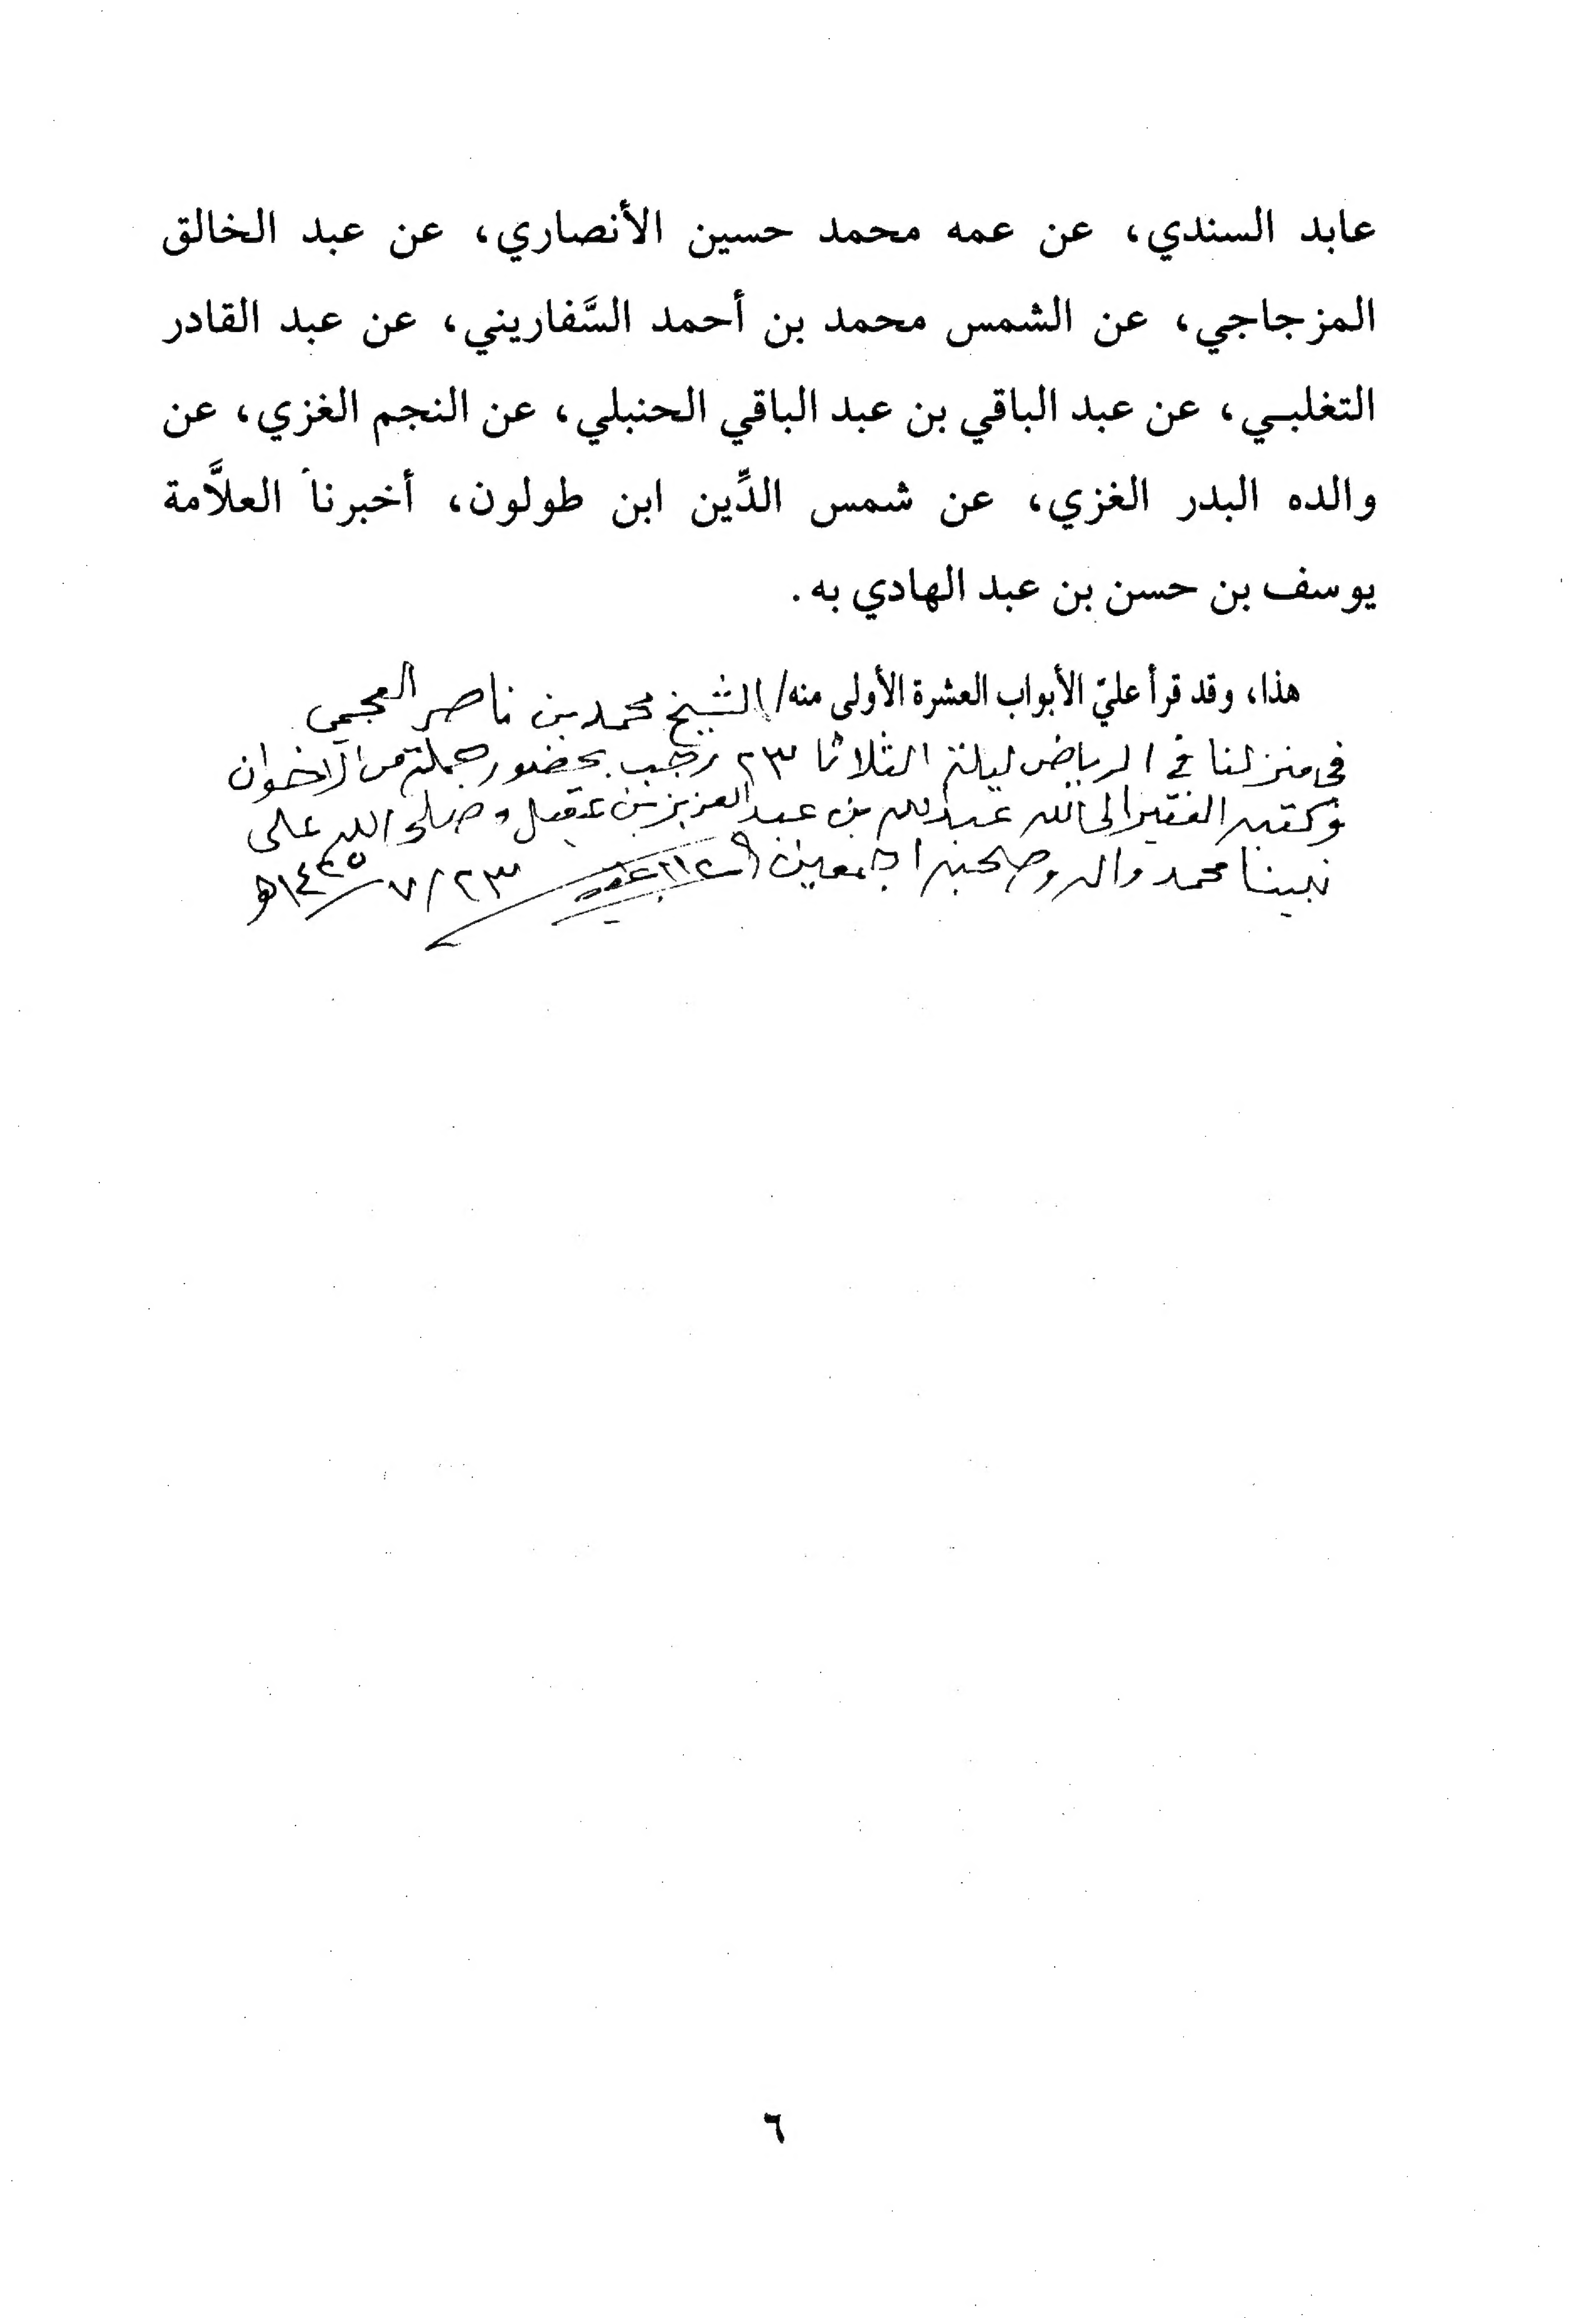 عابد السندي، عن عمه محمد حسين الأنصاري، عن عبد الخالق
المزجاجي، عن الشمس محمد بن أحمد السَّفاريني، عن عبد القادر
التغلبـي، عن عبد الباقي بن عبد الباقي الحنبلي، عن النجم الغزي، عن
والده البدر الغزي، عن شمس الدِّين ابن طولون، أخبرنا العلاَّمة
يوسف بن حسن بن عبد الهادي به.
هذا، وقد قرأ عليّ الأبواب العشرة الأولى منه/ الشيخ محمد بن ناصر العجمي
في منزلنا في الرياض ليلة الثلاثا ٢٣ رجب بحضور جملة من الاخوان
وكتبه الفقير الى الله عبدالله بن عبد العزيز بن عقيل وصلى الله على
نبينا محمد واله وصحبه اجمعين ٢٣/٧/١٤٢٥هـ
٦